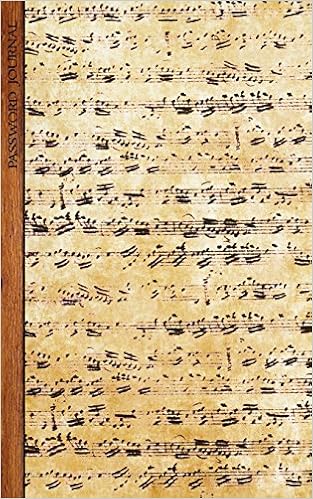 PASSWORD JOURNAL